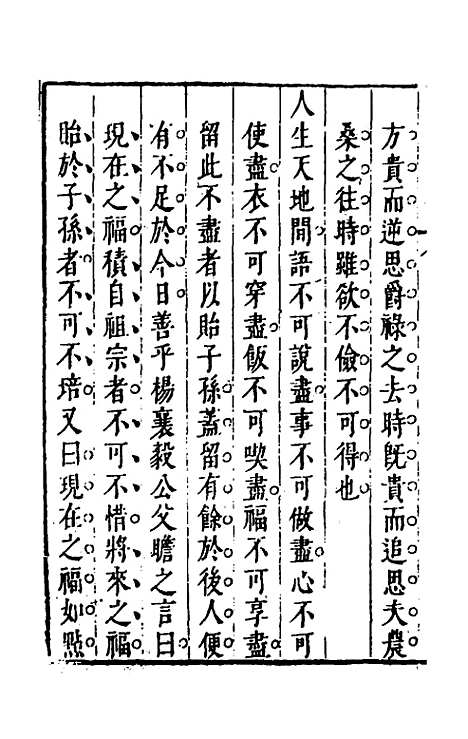 方貴而逆思爵祿之去時既貴而追思夫農
桑之往時雖欲不儉不可得也
人生天地間語不可說盡事不可做盡心不可
使盡衣不可穿盡飯不可喫盡福不可享盡
留此不盡者以貽子孫蓋留有餘於後人便
有不足於今日善乎楊襄毅公父瞻之言曰
現在之福積自祖宗者不可不惜將來之福
貽於子孫者不可不培又曰現在之福如點